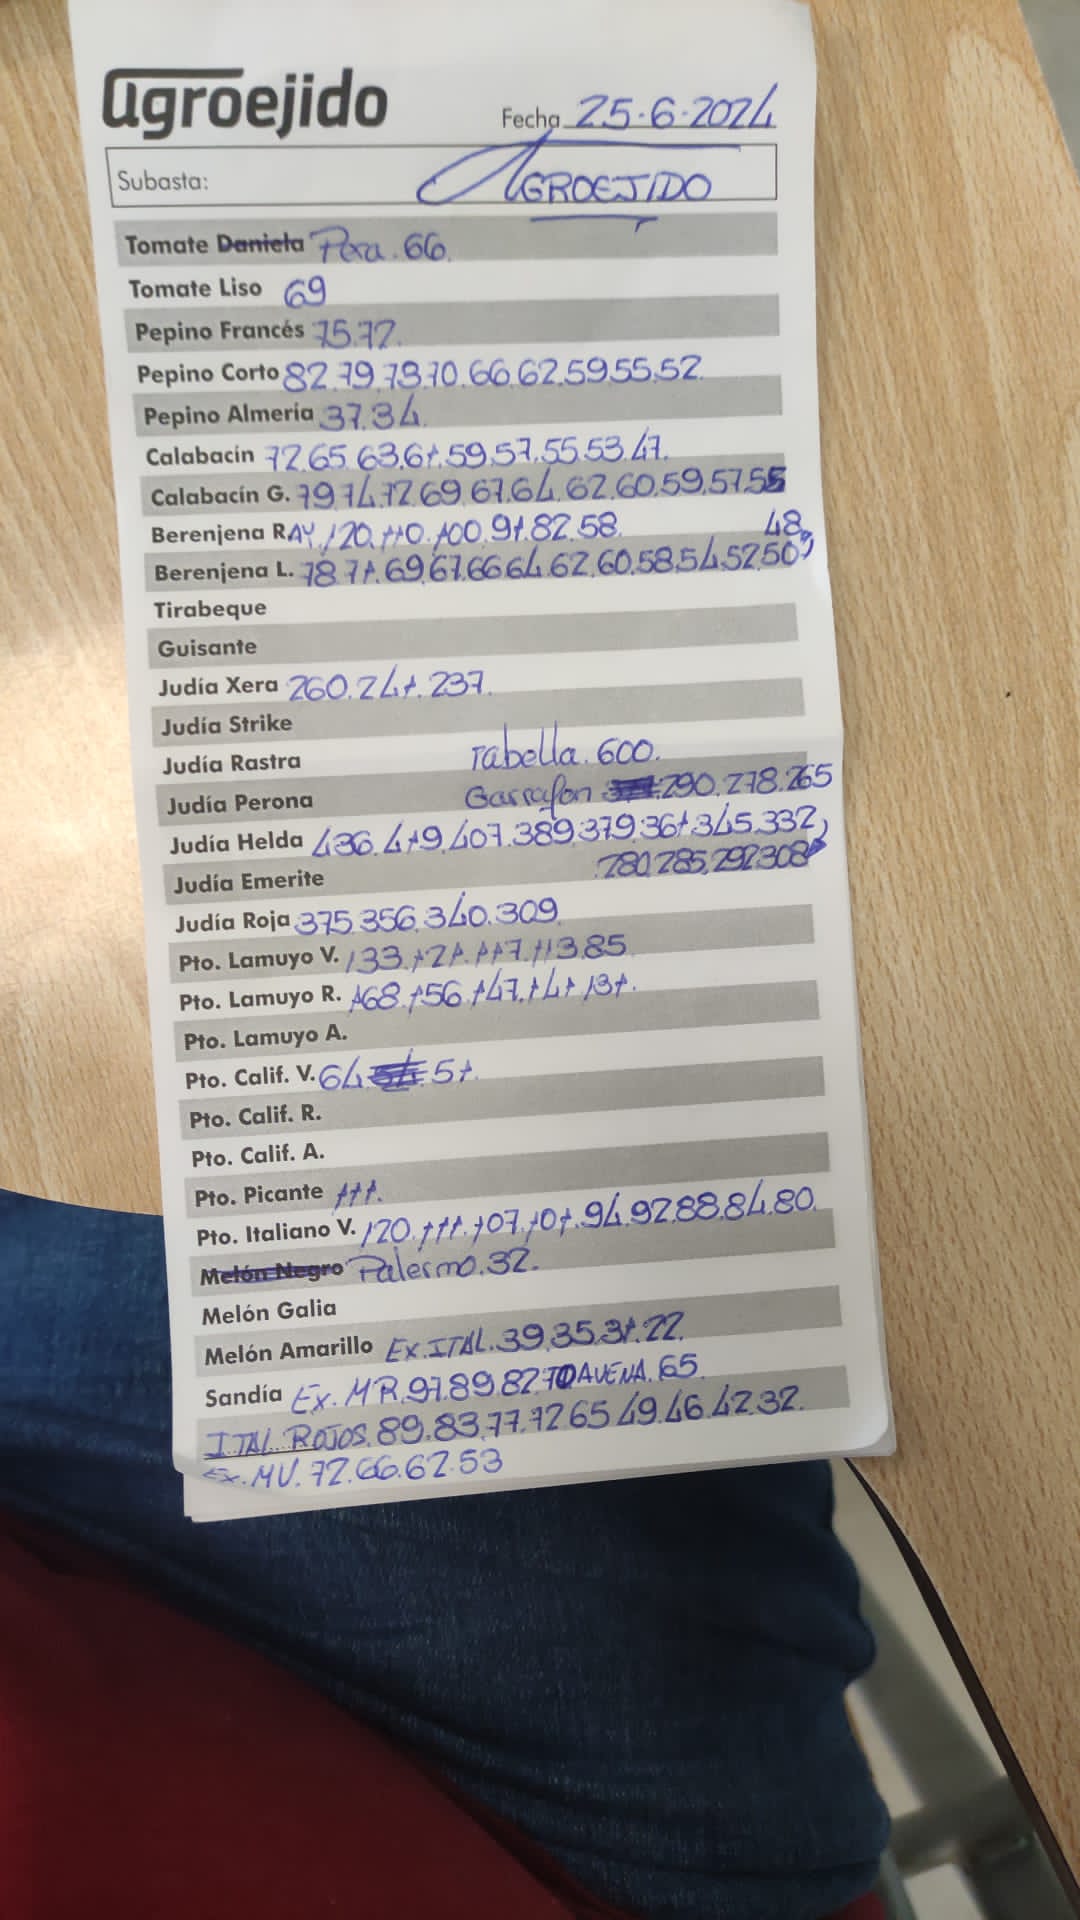 agroejido
Fecha 25-6-2024
Subasta: AGROEJIDO
Tomate Daniela Pera. 66.
Tomate Liso 69
Pepino Francés 75.72.
Pepino Corto 82.79.73.70.66.62.59.55.52.
Pepino Almería 37.34.
Calabacín 72.65.63.61.59.57.55.53.47.
Calabacín G. 79.74.72.69.67.64.62.60.59.57.55
Berenjena RAY. 120.110.100.91.82.58. 48
Berenjena L. 78.71.69.67.66.64.62.60.58.54.52.50
Tirabeque
Guisante
Judía Xera 260.241.237.
Judía Strike
Judía Rastra Tabella. 600.
Judía Perona Garrafon 290.278.265
Judía Helda 436.419.407.389.379.361.345.332
Judía Emerite 280.285.292.308
Judía Roja 375.356.340.309
Pto. Lamuyo V. 133.121.117.113.85
Pto. Lamuyo R. 168.156.147.141.131.
Pto. Lamuyo A.
Pto. Calif. V. 64. 51.
Pto. Calif. R.
Pto. Calif. A.
Pto. Picante 111.
Pto. Italiano V. 120.111.107.101.94.92.88.84.80.
Melón Negro Palermo. 32.
Melón Galia
Melón Amarillo Ex. ITAL. 39.35.31.22.
Sandía Ex. MR. 97.89.82.70 AVENA. 65.
ITAL ROJOS. 89.83.77.72.65.49.46.42.32.
Ex. MV. 72.66.62.53